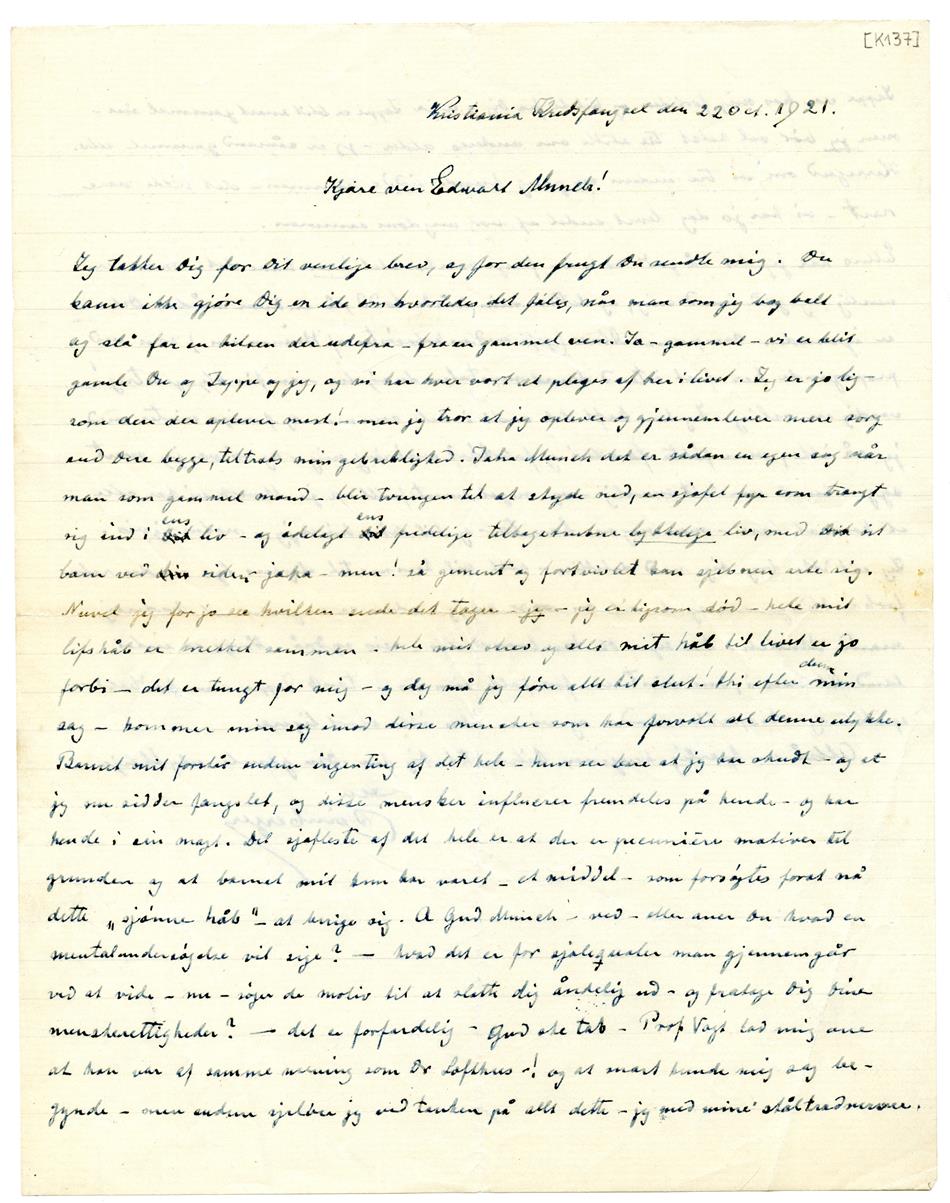 [K137]
Kristiania Kredsfængsel den 22 Oct. 1921.
Kjære ven Edvart Munch!
Jeg takker Dig for Dit venlige brev, og for den frugt Du sendte mig. Du
kann ikke gjöre Dig en ide om hvorledes det föles, når man som jeg bag bolt
og slå får en hilsen der udefra – fra en gammel ven. Ja – gammel – vi er blit
gamle Du og Jappe og jeg, og vi har hver vort at plages af her i livet. Jeg er jo lig-
som den der oplever mest! – men jeg tror at jeg oplever og gjennemlever mere sorg
end Dere begge, tiltrots min gebreklighed. Jaha Munch det er sådan en egen sag når
man som gammel mand – blir tvungen til at skyde ned, en sjofel fyr som trængt
sig ind i ens liv – og ödelagt ens fredelige tilbagetrukne lykkelige liv, med sit
barn ved siden, jaha – men! så gement og fortvivlet kan skjebnen arte sig.
Nuvel jeg får jo see hvilken ende det tager – jeg – jeg er ligsom död – hele mit
lifshåb er knekket sammen – hele mit strev og alle mit håb til livet er jo
forbi – det er tungt for mig – og dog må jeg före allt til slut! thi efter denne min
sag – kommer min sag imod disse mensker som har forvolt al denne ulykke.
Barnet mit forstår endnu ingenting af det hele – hun ser bare at jeg har skudt – og at
jeg nu sidder fængslet, og disse mensker influerer fremdeles på hende – og har
hende i sin magt. Det sjofleste af det hele er at der er pecuniære motiver til
grunden og at barnet mit kun har været – et middel – som forsögtes forat nå
dette „skjönne håb" – at berige sig. A Gud Munch – ved – eller aner Du hvad en
mentalundersögelse vil sige? – hvad det er for sjælequaler man gjennemgår
ved at vide – nu – söger de motiv til at slette dig åndelig ud – og fratage Dig Dine
menskerettigheder? – det er forfærdelig – Gud ske tak – Prof Vogt lod mig ane
at han var af samme mening som Dr Lofthus –! og at snart kunde mig sag be-
gynde – men endnu skjelver jeg ved tanken på allt dette – jeg med mine ståltradnerver.